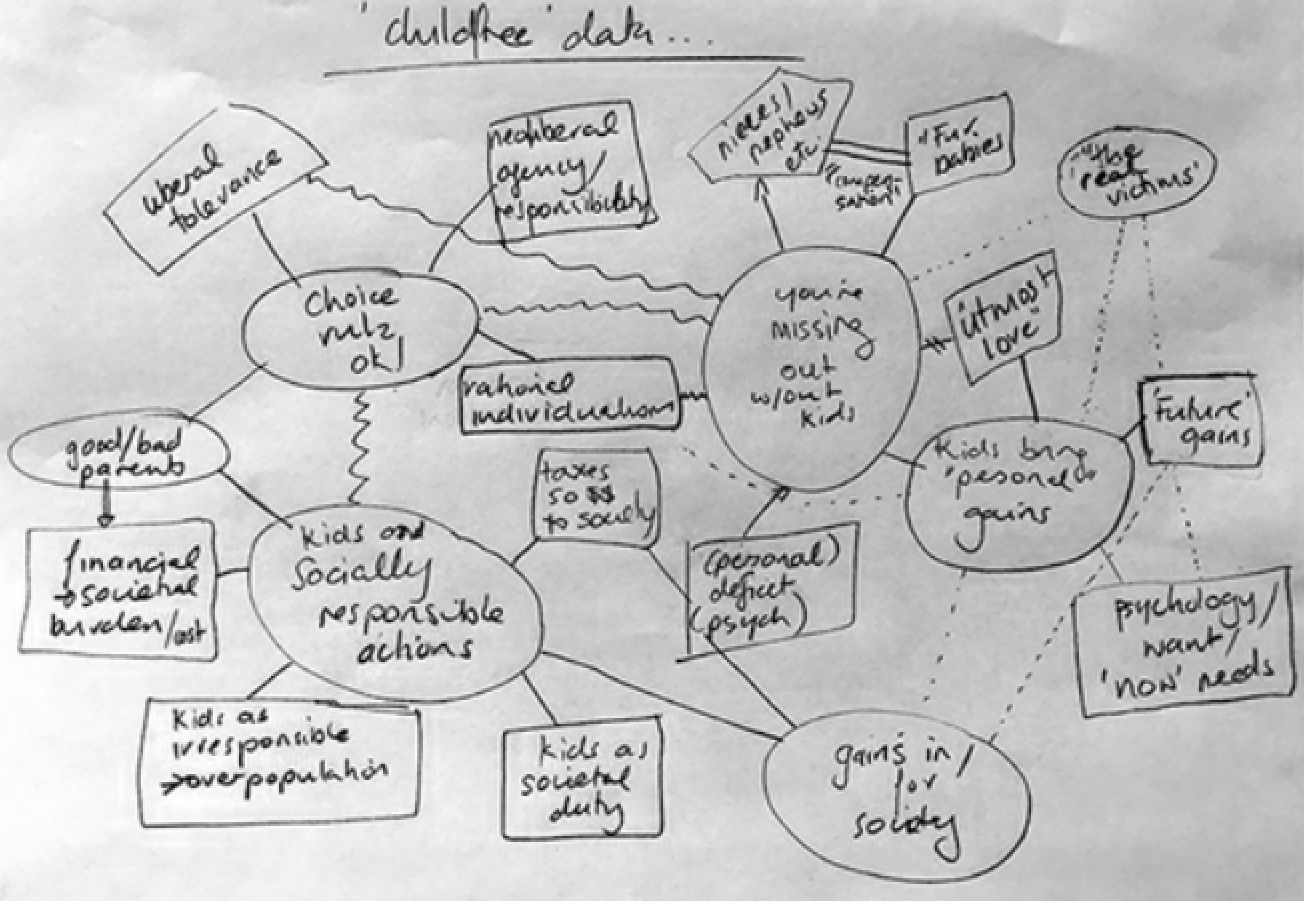 'childfree' data...
liberal
tolerance
neoliberal
agency/
responsibility
nieces/
nephews
etc.
"compen-
sation"
"Fur.
babies
"the
real
victims"
Choice
rulz
ok!
you're
missing
out
w/out
kids
"utmost
love"
rational
individualism
'Future'
gains
good/bad
parents
Kids bring
"personal"
gains
taxes
so $$
to society
financial
→societal
burden/cost
Kids and
socially
responsible
actions
(personal)
deficit
(psych)
psychology/
want/
'now' needs
Kids as
irresponsible
→overpopulation
kids as
societal
duty
gains in/
for
society